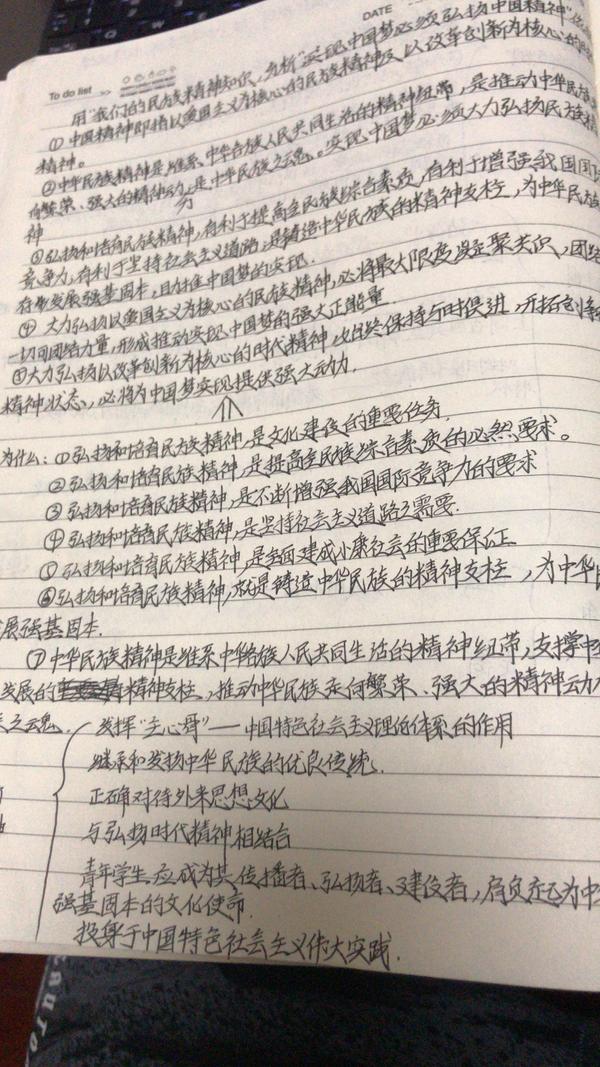 DATE
To do list >>
用"我们的民族精神知识,分析"实现中国梦必须弘扬中国精神"
①中国精神即指以爱国主义为核心的民族精神及以改革创新为核心的时代
精神。
②中华民族精神是维系中华各族人民共同生活的精神纽带,是推动中华民族走
向繁荣、强大的精神动力,是中华民族之魂。实现中国梦必须大力弘扬民族精
神
③弘扬和培育民族精神,有利于提高全民族综合素质,有利于增强我国国际
竞争力,有利于坚持社会主义道路,是铸造中华民族的精神支柱,为中华民族
存和发展强基固本,助推中国梦的实现.
④大力弘扬以爱国主义为核心的民族精神,必将最大限度凝聚共识,团结
一切可团结力量,形成推动实现中国梦的强大正能量.
⑤大力弘扬以改革创新为核心的时代精神,始终保持与时俱进,开拓创新
精神状态,必将为中国梦实现提供强大动力.
为什么:①弘扬和培育民族精神,是文化建设的重要任务.
②弘扬和培育民族精神,是提高全民族综合素质的必然要求。
③弘扬和培育民族精神,是不断增强我国国际竞争力的要求
④弘扬和培育民族精神,是坚持社会主义道路之需要.
⑤弘扬和培育民族精神,是全面建成小康社会的重要保证
⑥弘扬和培育民族精神,就是铸造中华民族的精神支柱,为中华
展强基固本.
⑦中华民族精神是维系中华各族人民共同生活的精神纽带,支撑中
发展的精神支柱,推动中华民族走向繁荣、强大的精神动力
之魂.
发挥"主心骨"——中国特色社会主义理论体系的作用
继承和发扬中华民族的优良传统.
正确对待外来思想文化
与弘扬时代精神相结合
青年学生应成为其传播者、弘扬者、建设者,肩负起为中
强基固本的文化使命.
投身于中国特色社会主义伟大实践.